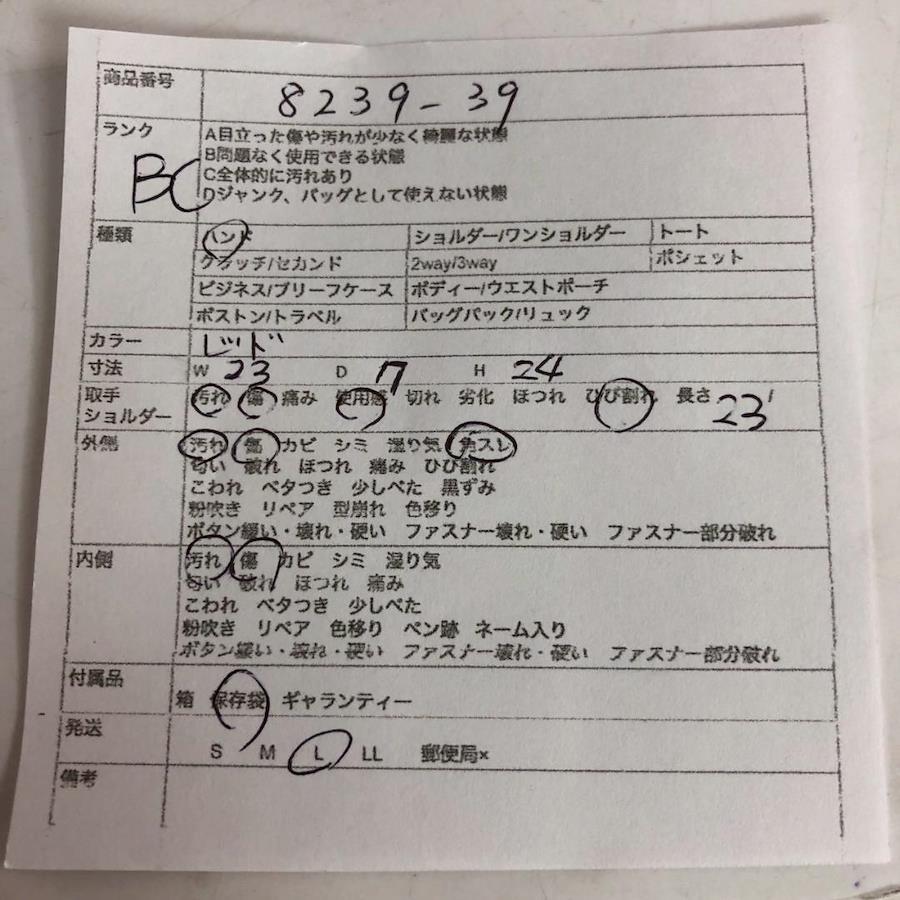 商品番号 8239-39
ランク BC
A目立った傷や汚れが少なく綺麗な状態
B問題なく使用できる状態
C全体的に汚れあり
Dジャンク、バッグとして使えない状態
種類 ハンド ショルダー/ワンショルダー トート
クラッチ/セカンド 2way/3way ポシェット
ビジネス/ブリーフケース ボディー/ウエストポーチ
ボストン/トラベル バッグパック/リュック
カラー レッド
寸法 W 23 D 17 H 24
取手 汚れ 傷 痛み 使用感 切れ 劣化 ほつれ ひび割れ 長さ 23
ショルダー
外側 汚れ 傷 カビ シミ 湿り気 角スレ
匂い 破れ ほつれ 痛み ひび割れ
こわれ ベタつき 少しべた 黒ずみ
粉吹き リペア 型崩れ 色移り
ボタン緩い・壊れ・硬い ファスナー壊れ・硬い ファスナー部分破れ
内側 汚れ 傷 カビ シミ 湿り気
匂い 破れ ほつれ 痛み
こわれ ベタつき 少しべた
粉吹き リペア 色移り ペン跡 ネーム入り
ボタン緩い・壊れ・硬い ファスナー壊れ・硬い ファスナー部分破れ
付属品 箱 保存袋 ギャランティー
発送 S M L LL 郵便局×
備考